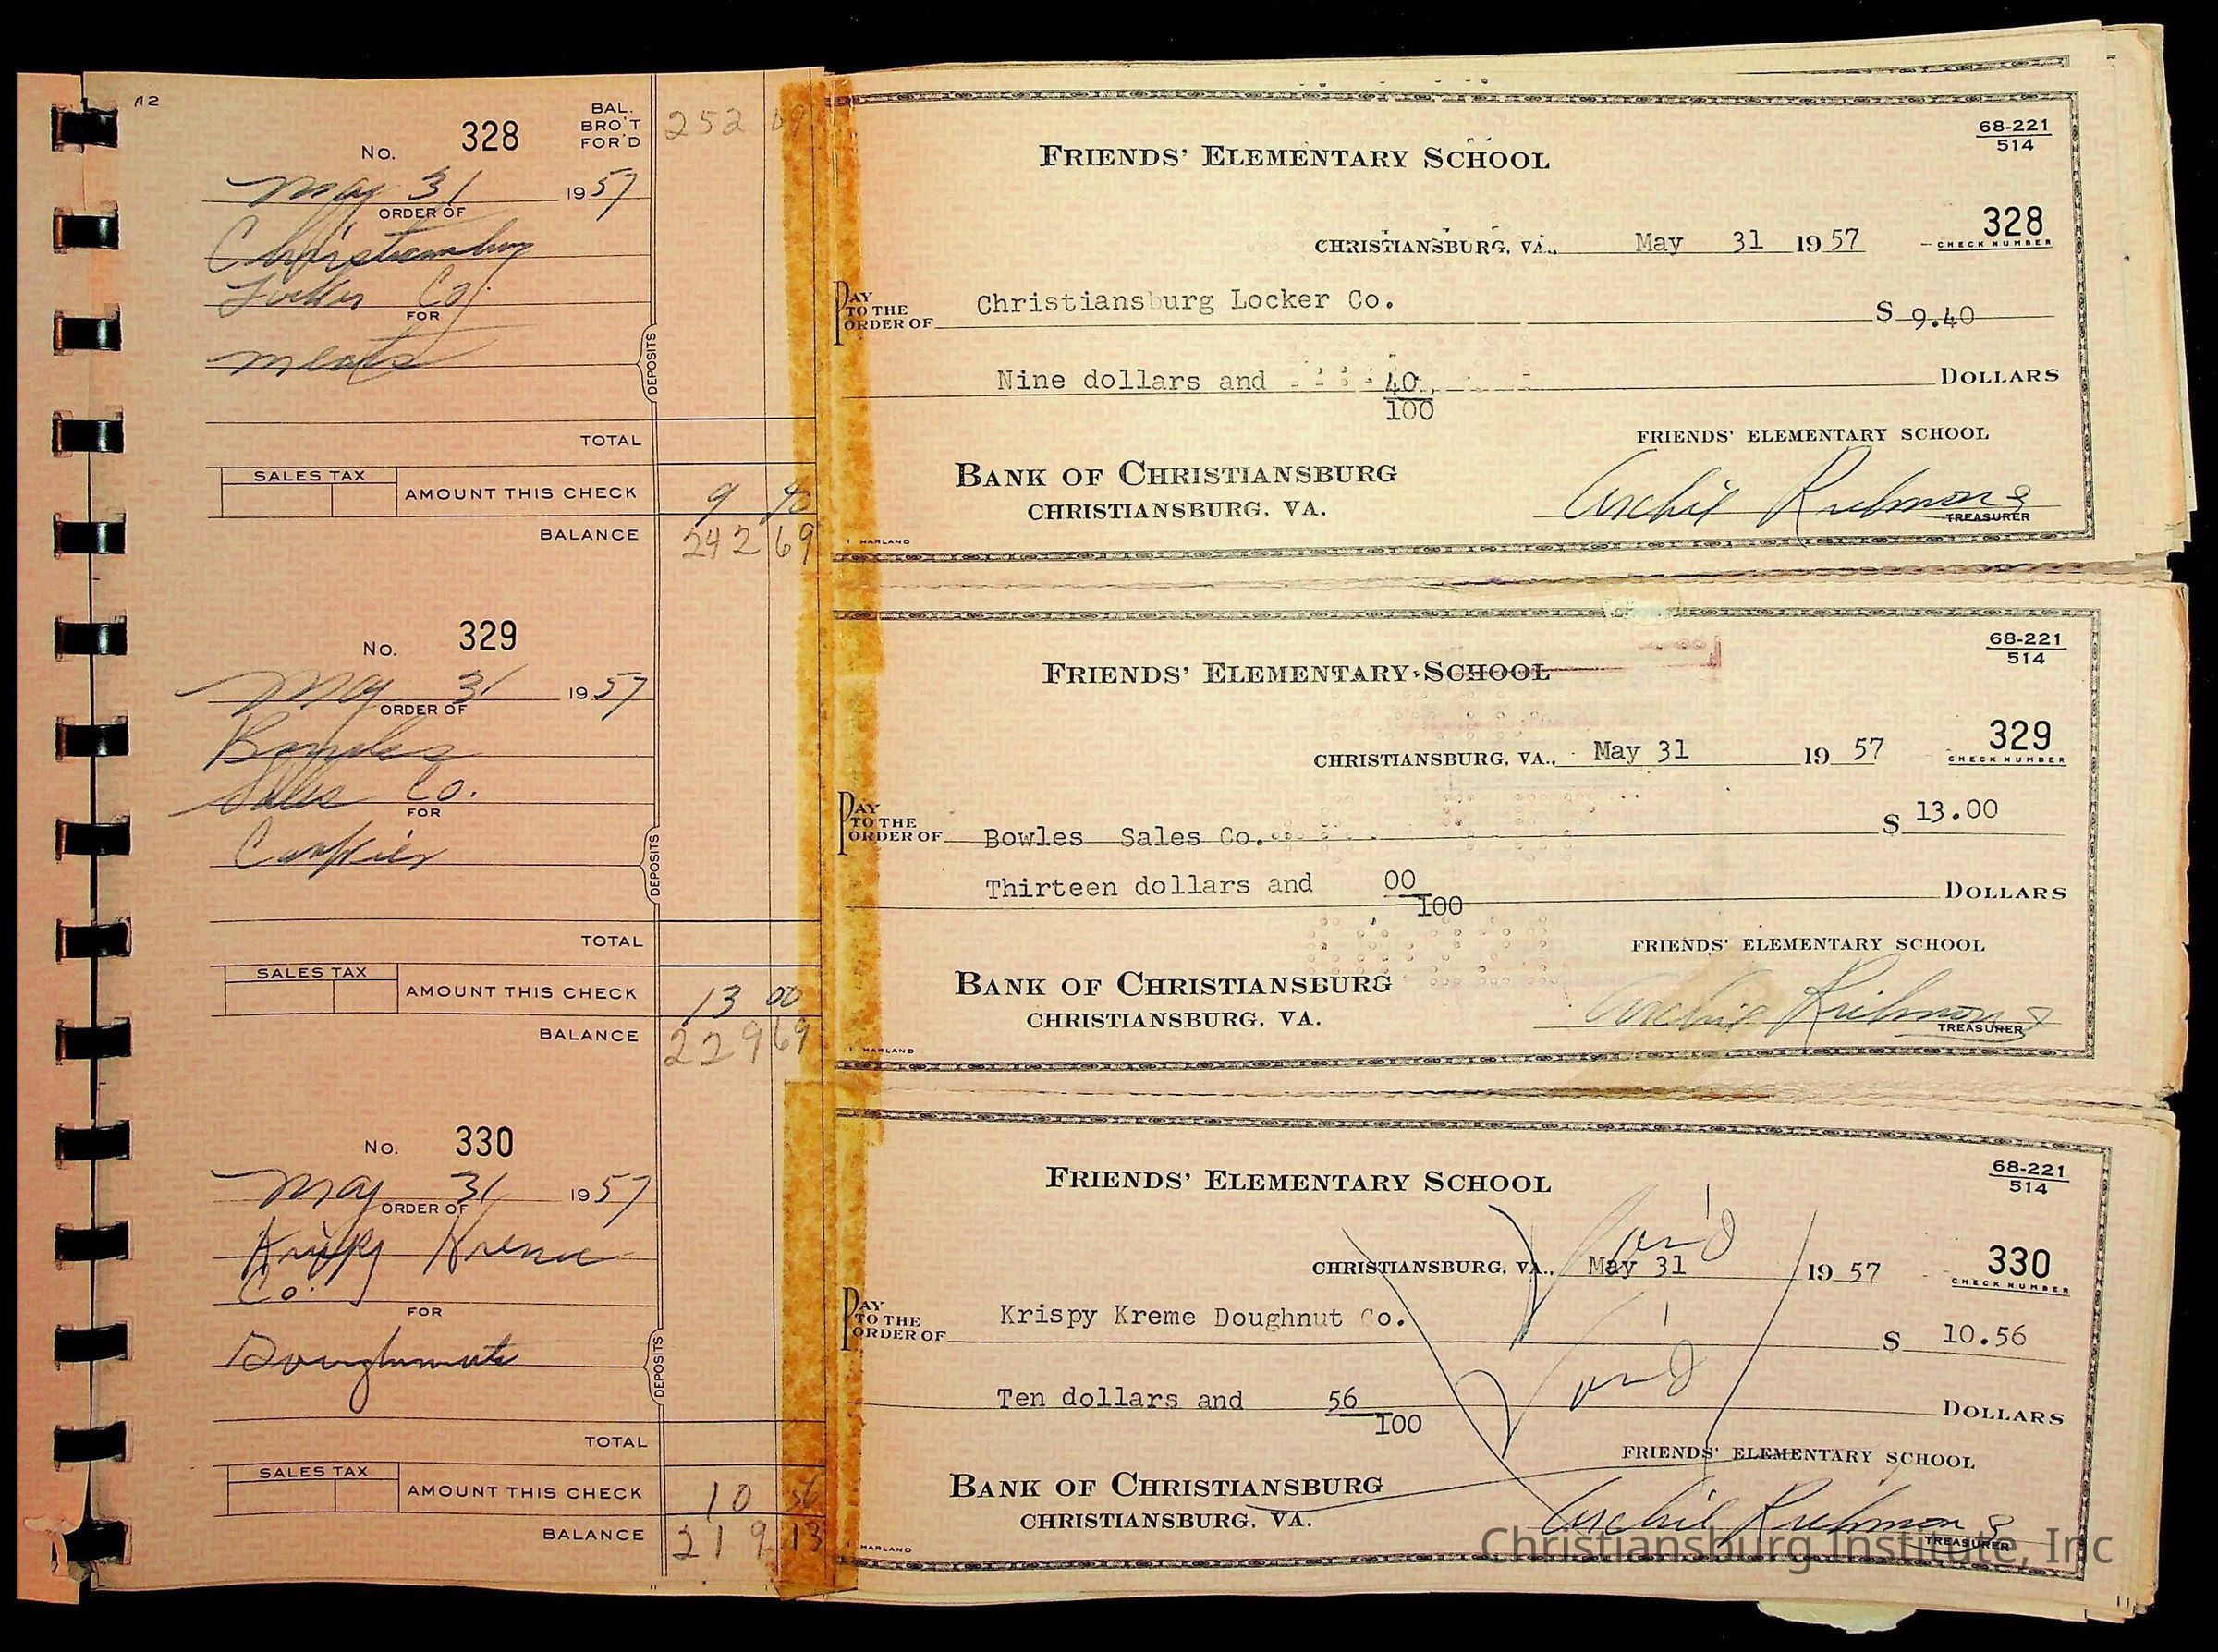 No. 328
BAL. BRO'T FOR'D 252 09
May 31 1957
ORDER OF
Christiansburg
Locker Co.
FOR
meats
DEPOSITS
TOTAL
SALES TAX
AMOUNT THIS CHECK 9 40
BALANCE 242 69
No. 329
May 31 1957
ORDER OF
Bowles
Sales Co.
FOR
DEPOSITS
TOTAL
SALES TAX
AMOUNT THIS CHECK 13 00
BALANCE 229 69
No. 330
May 31 1957
ORDER OF
Krispy Kreme
Co.
FOR
Doughnuts
DEPOSITS
TOTAL
SALES TAX
AMOUNT THIS CHECK 10 56
BALANCE 219 13
68-221
514
FRIENDS' ELEMENTARY SCHOOL
328
CHECK NUMBER
CHRISTIANSBURG, VA., May 31 1957
PAY TO THE ORDER OF Christiansburg Locker Co. $ 9.40
Nine dollars and 40/100 DOLLARS
FRIENDS' ELEMENTARY SCHOOL
BANK OF CHRISTIANSBURG
CHRISTIANSBURG, VA.
Archie Richmond
TREASURER
HARLAND
68-221
514
FRIENDS' ELEMENTARY SCHOOL
329
CHECK NUMBER
CHRISTIANSBURG, VA., May 31 1957
PAY TO THE ORDER OF Bowles Sales Co. $ 13.00
Thirteen dollars and 00/100 DOLLARS
FRIENDS' ELEMENTARY SCHOOL
BANK OF CHRISTIANSBURG
CHRISTIANSBURG, VA.
Archie Richmond
TREASURER
HARLAND
68-221
514
FRIENDS' ELEMENTARY SCHOOL
Void
330
CHECK NUMBER
CHRISTIANSBURG, VA., May 31 1957
PAY TO THE ORDER OF Krispy Kreme Doughnut Co. $ 10.56
Void
Ten dollars and 56/100 DOLLARS
FRIENDS' ELEMENTARY SCHOOL
BANK OF CHRISTIANSBURG
CHRISTIANSBURG, VA.
Archie Richmond
TREASURER
HARLAND
Christiansburg Institute, Inc